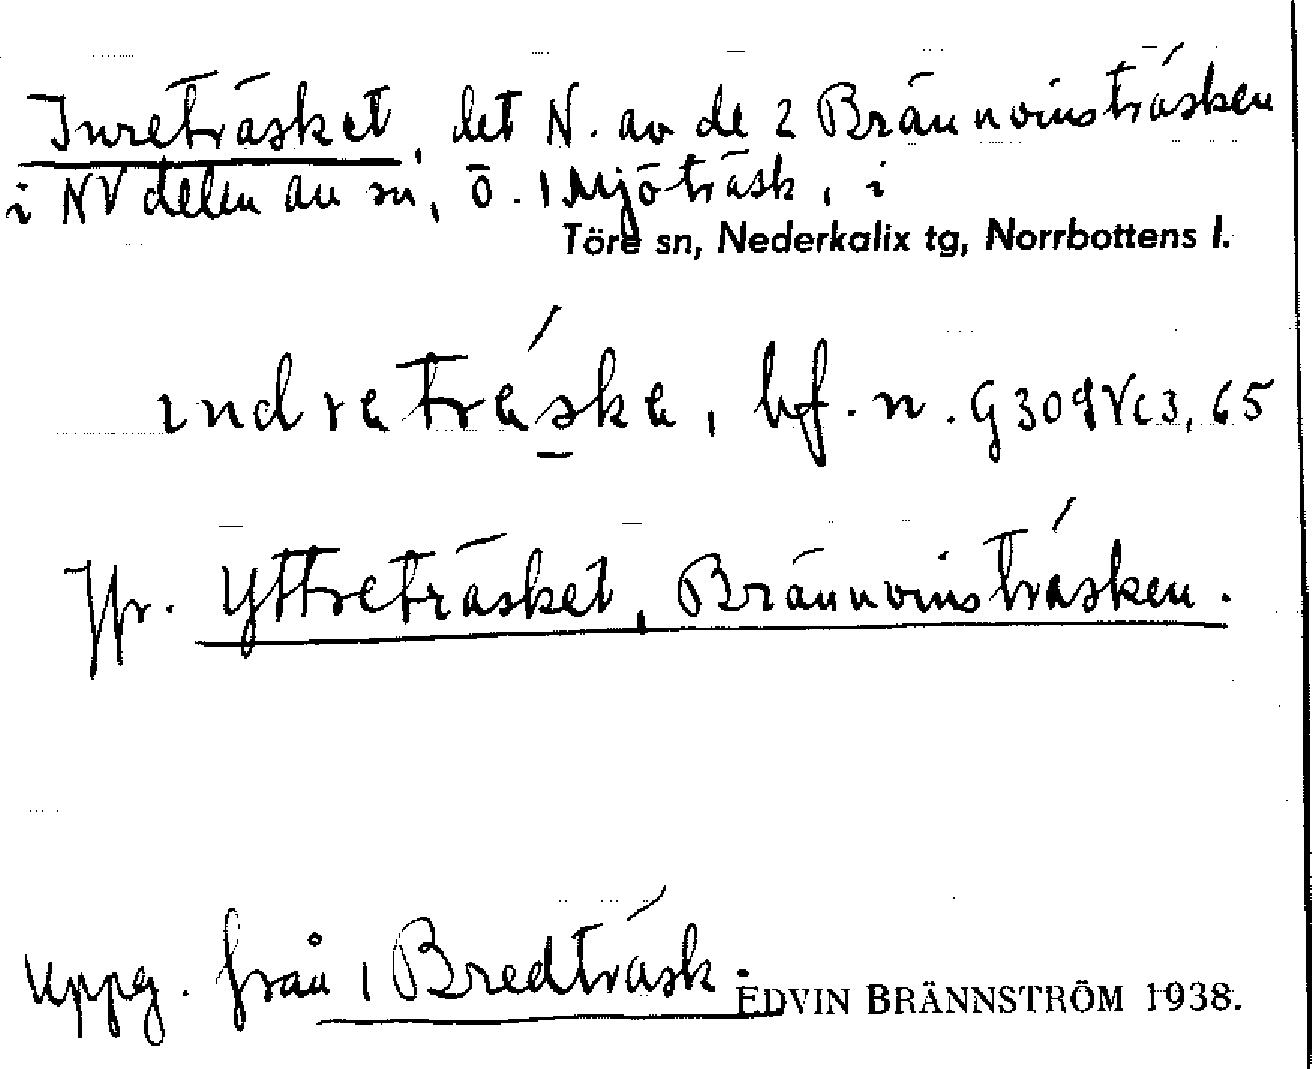 Inreträsket, det N. av de 2 Brännvinsträsken
i NV delen av sn, ö. 1 Mjöträsk, i
Töre sn, Nederkalix tg, Norrbottens l.
ındretrǽska, bf. n. G 309 Vc3, 65
Jfr. Yttreträsket, Brännvinsträsken.
Uppg. från 1 Bredträsk.
EDVIN BRÄNNSTRÖM 1938.